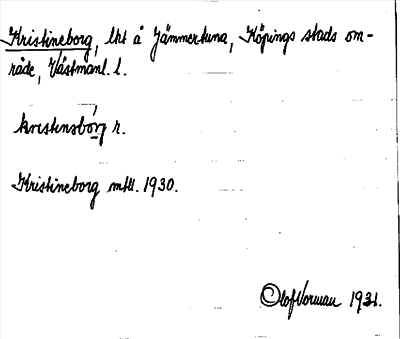 Kristineborg, lht å Jämmertuna, Köpings stads om-
råde, Västmanl. l.
kristinsbórj r.
Kristineborg mtll. 1930.
Olof Vorman 1931.